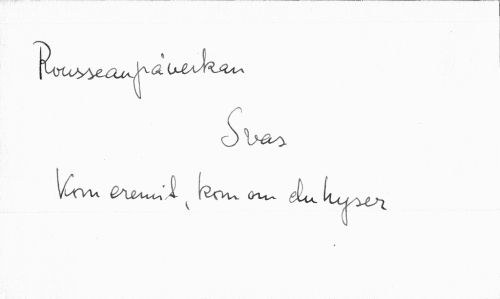 Rousseaupåverkan
Svas
Kom eremit, kom om du hyser